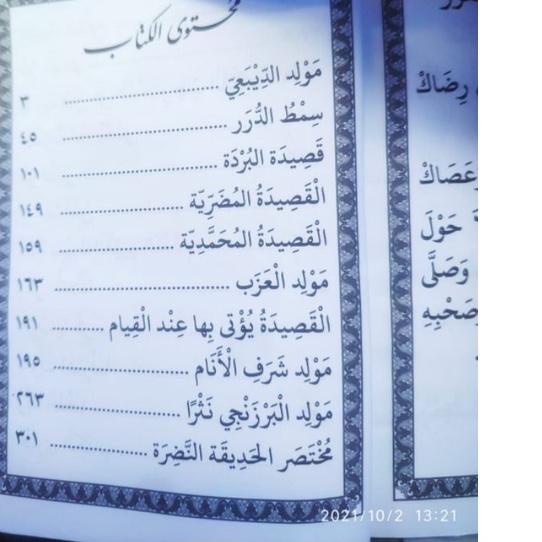 محتوى الكتاب
مَوْلِد الدِّيْبَعِيّ ........................ ٣
سِمْطُ الدُّرَر ........................ ٤٥
قَصِيدَة البُرْدَة ........................ ١٠١
الْقَصِيدَةُ المُضَرِيّة ........................ ١٤٩
الْقَصِيدَةُ المُحَمَّدِيّة ........................ ١٥٩
مَوْلِد الْعَزَب ........................ ١٦٣
الْقَصِيدَةُ يُؤْتى بِها عِنْد الْقِيام ........... ١٩١
مَوْلِد شَرَفِ الْأَنَام ........................ ١٩٥
مَوْلِد الْبَرْزَنْجِي نَثْرًا ........................ ٢٦٣
مُخْتَصَر الحَدِيقَة النَّضِرَة ................ ٣٠١
رِضَاكْ
عَصَاكْ
حَوْلَ
وَصَلَّى
وَصَحْبِهِ
2021/10/2 13:21